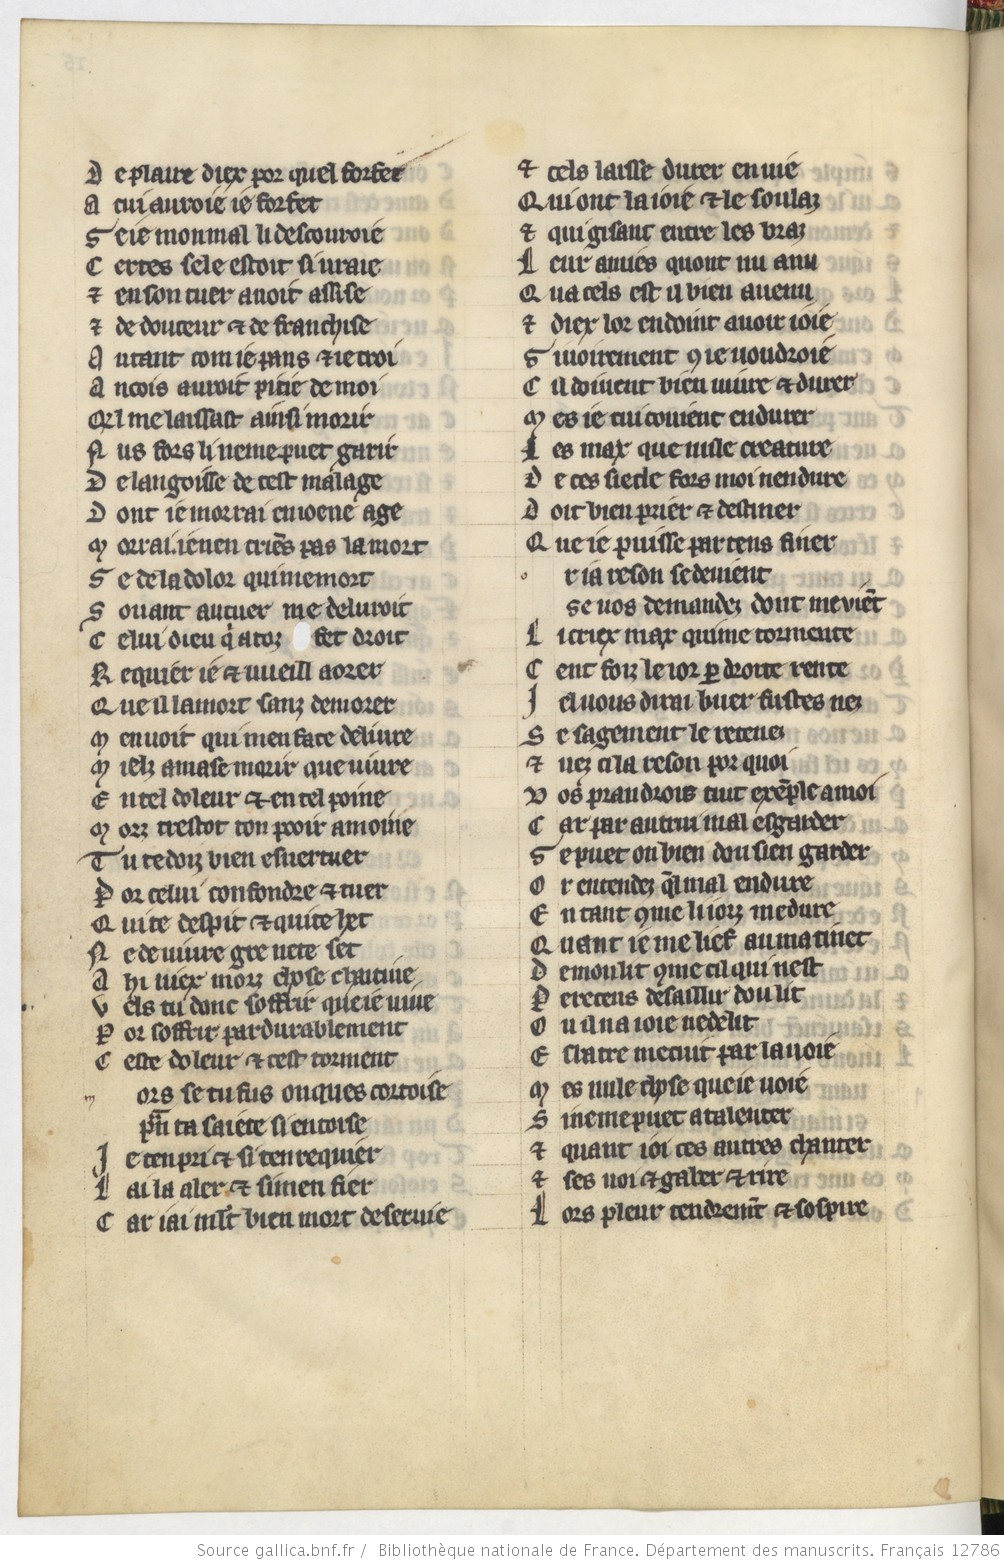 D e plaire diex por quel forfet
A cui auroie ie forfet
S e ie mon mal li descouroie
C ertes sele estoit si uraie
⁊ en son cuer auoit assise
⁊ de douceur ⁊ de franchise
A utant com ie pans ⁊ ie croi
A ncois auroit pitie de moi
Q̄l me laissast ainsi morir
N us fors li ne me puet garir
D e langoisse de cest malage
D ont ie morrai en moene age
M orrai. ie nen criēs pas la mort
S e de la dolor qui me mort
S ouant au cuer me deliuroit
C elui dieu q̇ a toz fet droit
R equier ie ⁊ uueill aorer
Q ue il la mort sanz demorer
M enuoit qui men face deliure
M ielz amasse morir que uiure
E n tel doleur ⁊ en tel poine
M orz trestot ton pooir amoine
T u te doiz bien esuertuer
P or celui confondre ⁊ tuer
Q ui te despit ⁊ qui te het
N e de uiure gre ne te set
A hi uiex morz chose chaitiue
V els tu donc soffrir que ie uiue
P or soffrir pardurablement
C este doleur ⁊ cest torment
m ors se tu fus onques cortoise
pm̄ ta saiete si entoise
J e ten pri ⁊ si ten requier
L ai la aler ⁊ si men fier
C ar iai ml̄t bien mort deseruie
⁊ cels laisse durer en uie
Q ui ont la ioie ⁊ le soulaz
⁊ qui gisant entre les braz
L eur amies quont nu a nu
Q ua cels est il bien auenu
⁊ diex lor en doint auoir ioie
S i uoirement ꝯ ie uoudroie
C il doiuent bien uiure ⁊ durer
M es ie cui couient endurer
L es max que nulle creature
D e ces siecle fors moi nendure
D oit bien prier ⁊ destiner
Q ue ie puisse par tens finer
o r ia reson se deuient
se uos demandez dont me viēt
L i criex max qui me tormente
C ent foiz le ior ꝑ droite rente
J el uous dirai buer fustes nez
S e sagement le retenez
⁊ uez ci la reson por quoi
V os prandrois tuit exēple a moi
C ar par autrui mal esgarder
S e puet on bien dou sien garder
O r entendez q̄l mal endure
E n tant ꝯme li iorz me dure
Q uant ie me lief au matinet
D e mon lit ꝯme cil qui nest
P ereceus de saillir dou lit
O u il na ioie ne delit
E sla tre me cuit par la uoie
M es nule chose que ie uoie
S i ne me puet atalenter
⁊ quant ioi ces autres chanter
⁊ ses uoi ⁊ gaber ⁊ rire
L ors pleur tendremt̄ ⁊ sospire
Source gallica.bnf.fr / Bibliothèque nationale de France. Département des manuscrits. Français 12786